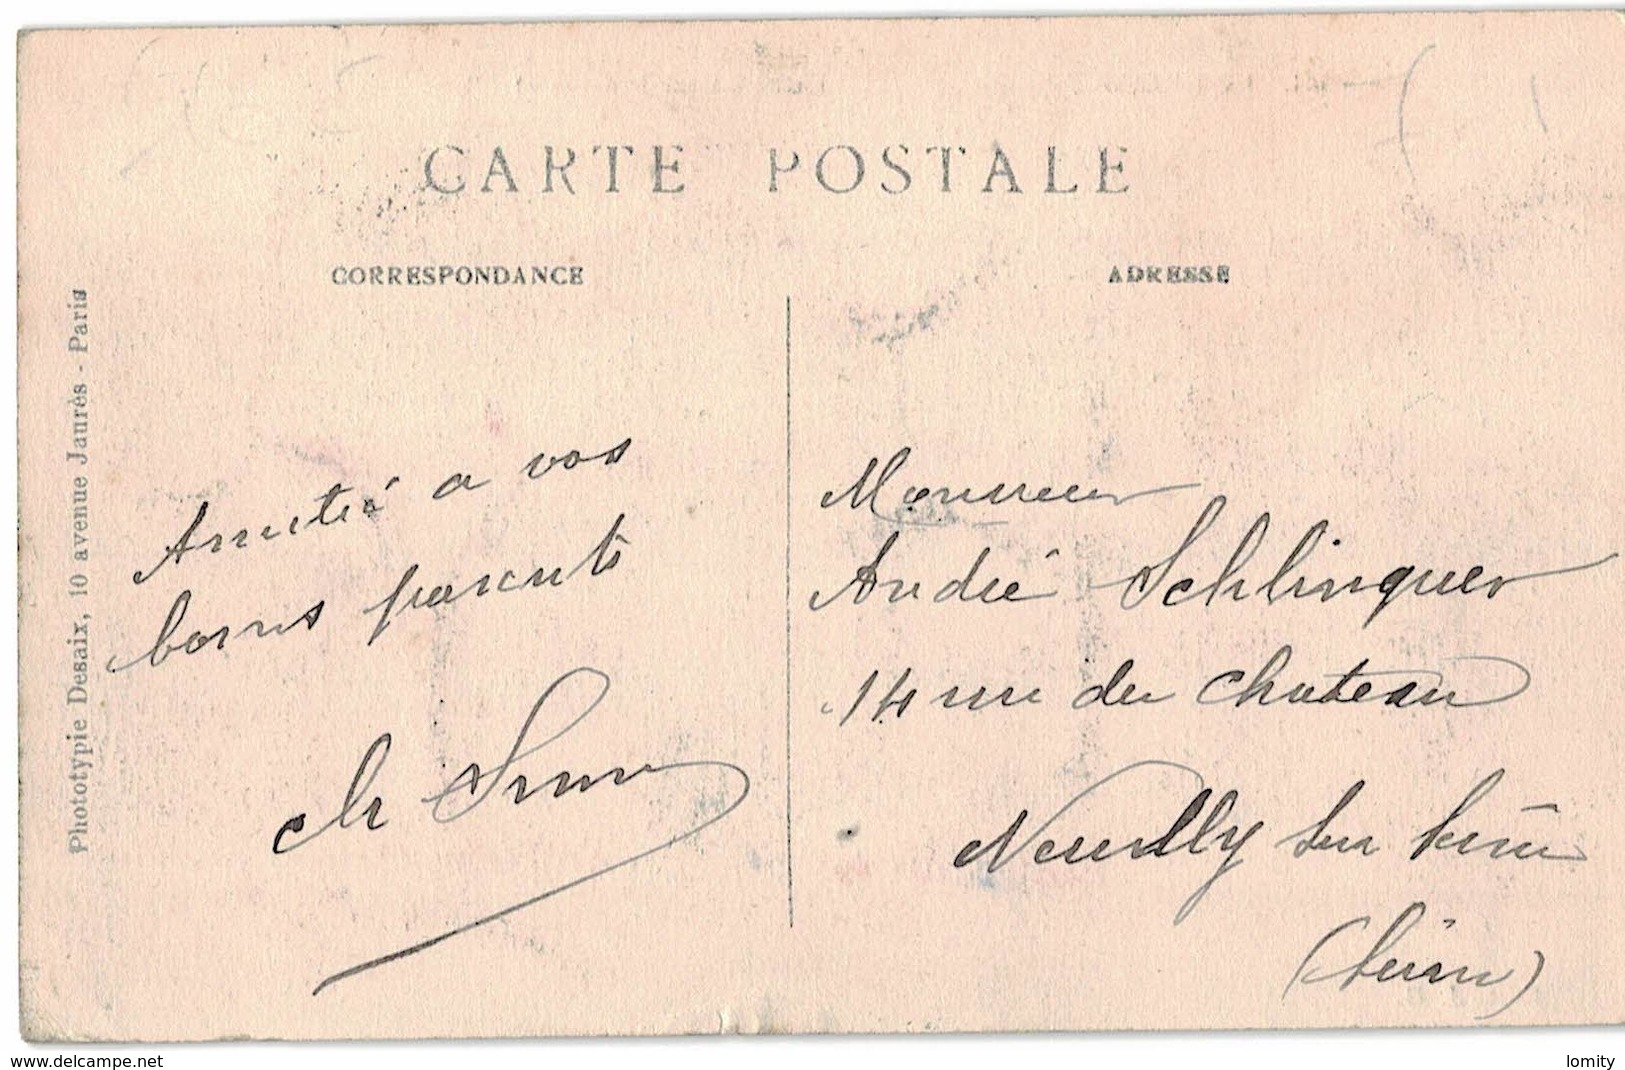 CARTE POSTALE
CORRESPONDANCE
ADRESSE
Phototypie Desaix, 10 avenue Jaurès - Paris
Amitié a vos
bons parents
ch
Monsieur
André Schlinquer
14 rue du chateau
Neuilly sur seine
(seine)
www.delcampe.net
lomity